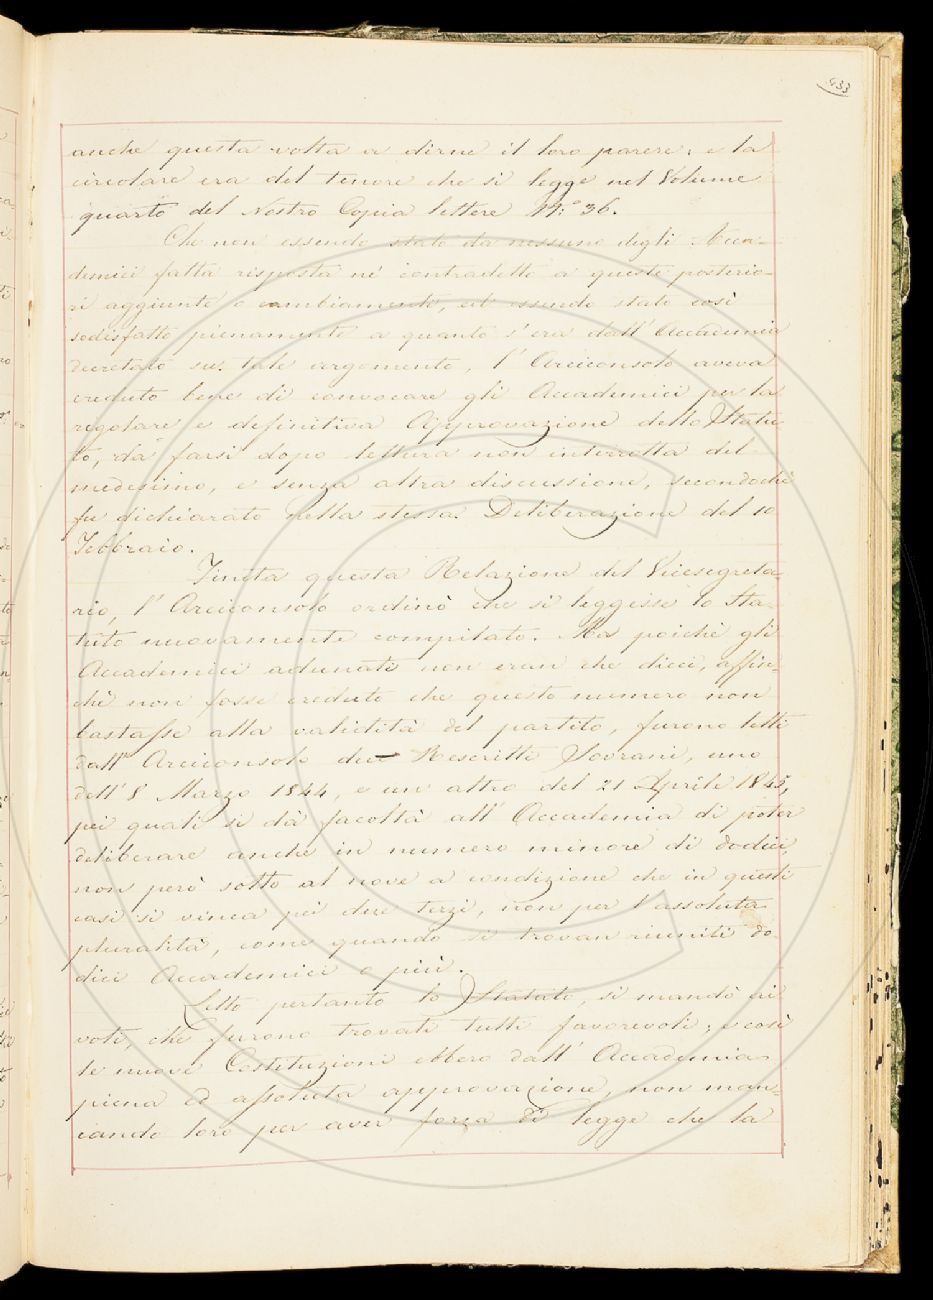 433
anche questa volta a dirne il loro parere; e la
circolare era del tenore che si legge nel Volume
quarto del Nostro Copia lettere N.° 36.
Che non essendo stato da nessuno degli Acca-
demici fatta risposta nè contradetto a queste posterio-
ri aggiunte o cambiamento, ed essendo stato così
sodisfatto pienamente a quanto s'era dall' Accademia
decretato su tale argomento, l' Arciconsolo aveva
creduto bene di convocare gli Accademici per la
regolare e definitiva Approvazione dello Statu-
to, da farsi dopo lettura non interrotta del
medesimo, e senza altra discussione, secondochè
fu dichiarato nella stessa Deliberazione del 10
Febbraio.
Finita questa Relazione del Vicesegreta-
rio, l' Arciconsolo ordinò che si leggesse lo Sta-
tuto nuovamente compilato. Ma poichè gli
Accademici adunati non eran che dieci, affin-
chè non fosse creduto che questo numero non
bastasse alla validità del partito, furono letti
dall' Arciconsolo due Rescritti Sovrani, uno
dell' 8 Marzo 1844, e un altro del 21 Aprile 1845,
pei quali si dà facoltà all' Accademia di poter
deliberare anche in numero minore di dodici,
non però sotto al nove a condizione che in questi
casi si vinca pei due terzi, non per l'assoluta
pluralità, come quando si trovan riuniti do-
dici Accademici o più.
Letto pertanto lo Statuto, si mandò ai
voti, che furono trovati tutti favorevoli; e così
le nuove Costituzioni ebbero dall' Accademia
piena ed assoluta approvazione, non man-
cando loro per aver forza di legge che la